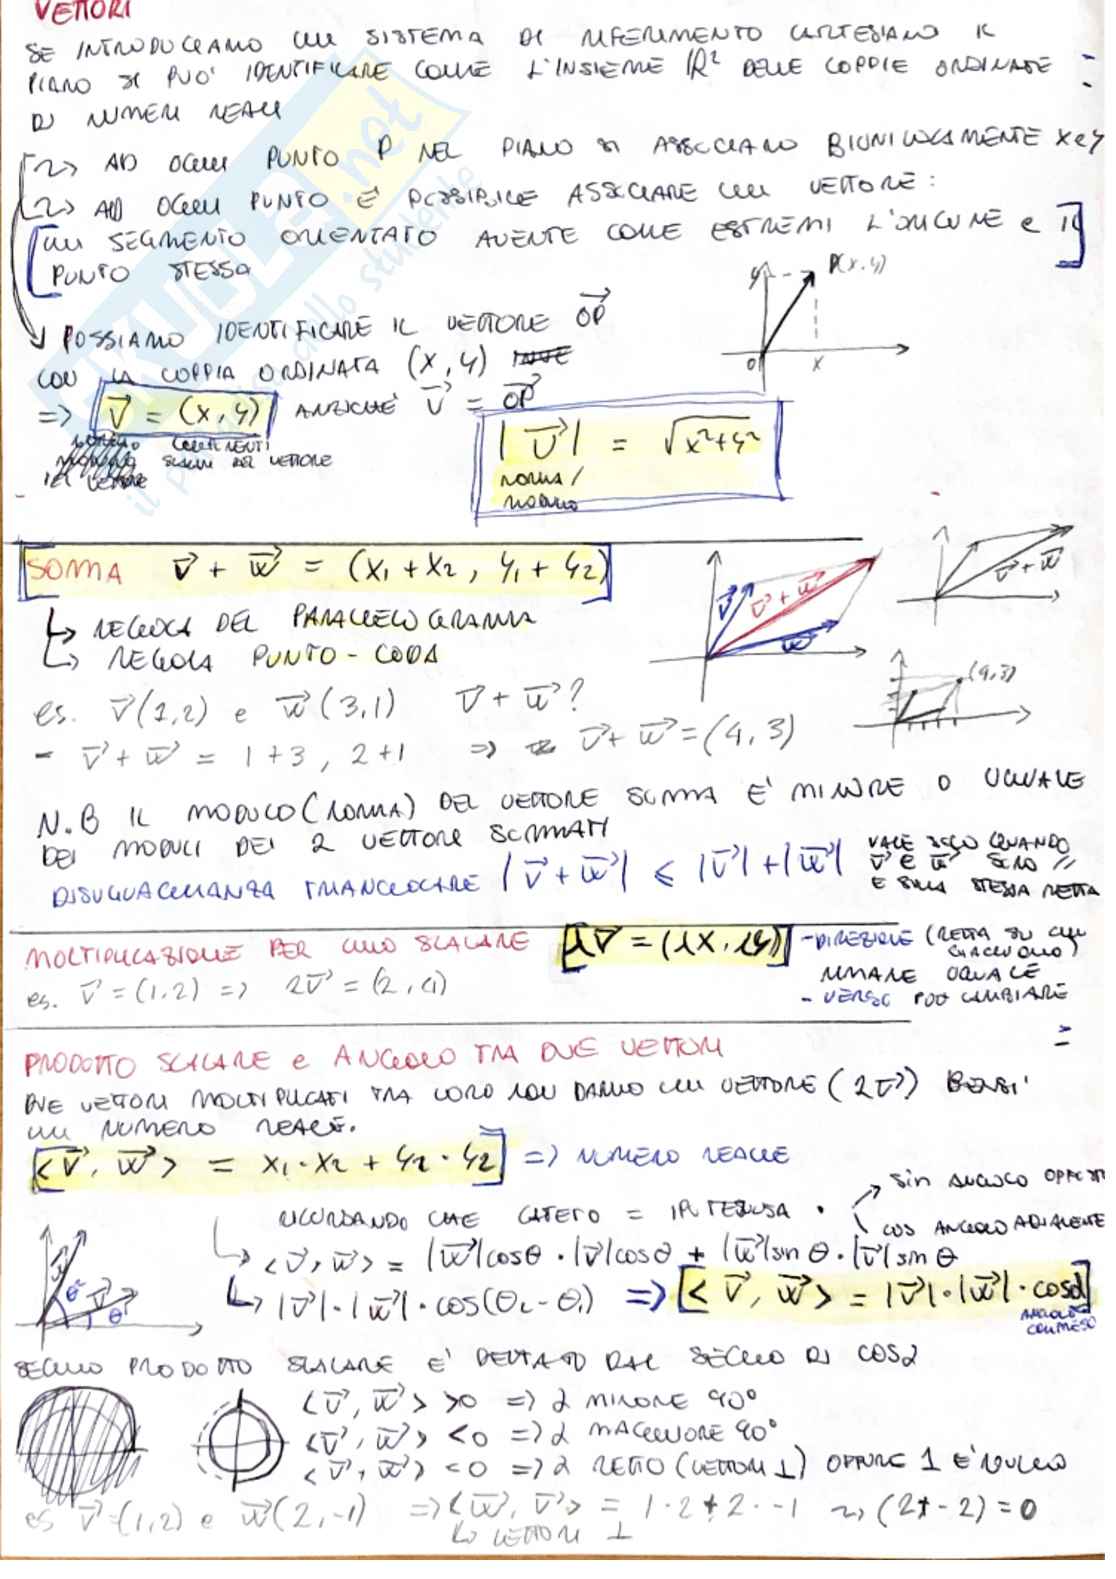 VETTORI
SE INTRODUCIAMO UN SISTEMA DI RIFERIMENTO CARTESIANO IL
PIANO SI PUO' IDENTIFICARE COME L'INSIEME ℝ² DELLE COPPIE ORDINATE
DI NUMERI REALI
~> AD OGNI PUNTO P NEL PIANO SI ASSOCIANO BIUNIVOCAMENTE X e Y
~> AD OGNI PUNTO E' POSSIBILE ASSOCIARE UN VETTORE:
[UN SEGMENTO ORIENTATO AVENTE COME ESTREMI L'ORIGINE e IL
PUNTO STESSO]
y P(x,y)
O x
POSSIAMO IDENTIFICARE IL VETTORE OP⃗
CON LA COPPIA ORDINATA (X, Y)
=> v⃗ = (X, Y) ANZICHÈ v⃗ = OP⃗
COMPONENTI
SCALARI DEL VETTORE
IL VETTORE
|v⃗| = √x²+y²
NORMA/
MODULO
SOMMA v⃗ + w⃗ = (X₁ + X₂, Y₁ + Y₂)
↳ REGOLA DEL PARALLELOGRAMMA
↳ REGOLA PUNTO-CODA
v⃗ v⃗+w⃗ w⃗
v⃗+w⃗
(4,3)
es. v⃗(1,2) e w⃗(3,1) v⃗ + w⃗?
- v⃗ + w⃗ = 1+3, 2+1 => v⃗ + w⃗ = (4,3)
N.B IL MODULO (NORMA) DEL VETTORE SOMMA E' MINORE O UGUALE
DEI MODULI DEI 2 VETTORI SOMMATI
DISUGUAGLIANZA TRIANGOLARE |v⃗ + w⃗| ⩽ |v⃗| + |w⃗|
VALE SOLO QUANDO
v⃗ E w⃗ SONO //
E SULLA STESSA RETTA
MOLTIPLICAZIONE PER UNO SCALARE [λv⃗ = (λX, λY)]
- DIREZIONE (RETTA SU CUI
GIACCIONO)
RIMANE UGUALE
- VERSO PUO' CAMBIARE
es. v⃗ = (1,2) => 2v⃗ = (2,4)
PRODOTTO SCALARE e ANGOLO TRA DUE VETTORI
DUE VETTORI MOLTIPLICATI TRA LORO NON DANNO UN VETTORE (2v⃗) BENSI'
UN NUMERO REALE.
[<v⃗, w⃗> = X₁·X₂ + Y₂·Y₂] => NUMERO REALE
RICORDANDO CHE CATETO = IPOTENUSA ·
sin ANGOLO OPPOSTO
cos ANGOLO ADIACENTE
↳ <v⃗, w⃗> = |w⃗|cosθ · |v⃗|cosθ + |w⃗|sin θ · |v⃗|sin θ
↳ |v⃗|·|w⃗|·cos(θ₂-θ₁) => [<v⃗, w⃗> = |v⃗|·|w⃗|·cosα]
ANGOLO
COMPRESO
w⃗ θ² v⃗ θ'
SEGNO PRODOTTO SCALARE E' DETTATO DAL SEGNO DI COSα
<v⃗, w⃗> >0 => α MINORE 90°
<v⃗, w⃗> <0 => α MAGGIORE 90°
<v⃗, w⃗> =0 => α RETTO (VETTORI ⊥) OPPURE 1 E' NULLO
es v⃗=(1,2) e w⃗(2,-1) => <w⃗, v⃗> = 1·2+2·-1 ~> (2+-2)=0
↳ VETTORI ⊥